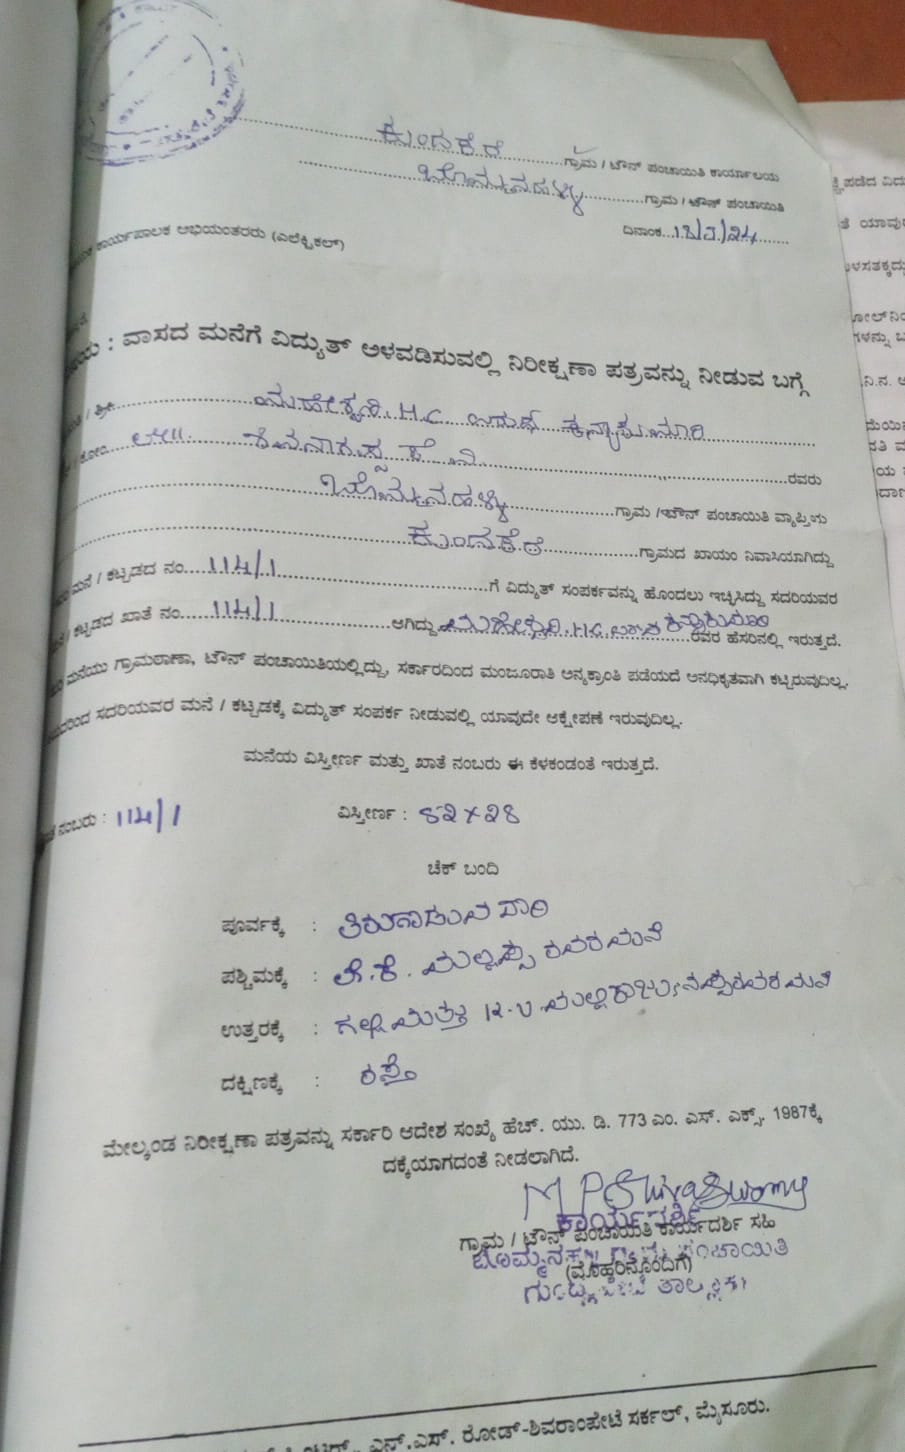 ಕುಂದಕೆರೆ ಗ್ರಾಮ / ಟೌನ್ ಪಂಚಾಯಿತಿ ಕಾರ್ಯಾಲಯ
ಬೊಮ್ಮನಹಳ್ಳಿ ಗ್ರಾಮ / ಟೌನ್ ಪಂಚಾಯಿತಿ
ದಿನಾಂಕ
ಕಾರ್ಯಪಾಲಕ ಅಭಿಯಂತರರು (ಎಲೆಕ್ಟ್ರಿಕಲ್)
: ವಾಸದ ಮನೆಗೆ ವಿದ್ಯುತ್ ಅಳವಡಿಸುವಲ್ಲಿ ನಿರೀಕ್ಷಣಾ ಪತ್ರವನ್ನು ನೀಡುವ ಬಗ್ಗೆ
/ ಶ್ರೀ ಮಹೇಶ್ವರಿ. H.C. ಉರುಫ್ ಕನ್ಯಾಕುಮಾರಿ
/ ಕೋಂ ಲೇ|| ಶಿವನಾಗಪ್ಪ ಕೆ ವಿ ರವರು
ಬೊಮ್ಮನಹಳ್ಳಿ ಗ್ರಾಮ / ಟೌನ್ ಪಂಚಾಯಿತಿ ವ್ಯಾಪ್ತಿಯ
ಕುಂದಕೆರೆ ಗ್ರಾಮದ ಖಾಯಂ ನಿವಾಸಿಯಾಗಿದ್ದು
ಮನೆ / ಕಟ್ಟಡದ ನಂ. 114/1 ಗೆ ವಿದ್ಯುತ್ ಸಂಪರ್ಕವನ್ನು ಹೊಂದಲು ಇಚ್ಛಿಸಿದ್ದು ಸದರಿಯವರ
/ ಕಟ್ಟಡದ ಖಾತೆ ನಂ. 114/1 ಆಗಿದ್ದು ಮಹೇಶ್ವರಿ. H.C. ಕನ್ಯಾಕುಮಾರಿ ರವರ ಹೆಸರಿನಲ್ಲಿ ಇರುತ್ತದೆ.
ಮನೆಯು ಗ್ರಾಮಠಾಣಾ, ಟೌನ್ ಪಂಚಾಯಿತಿಯಲ್ಲಿದ್ದು, ಸರ್ಕಾರದಿಂದ ಮಂಜೂರಾತಿ ಅನ್ಯಕ್ರಾಂತಿ ಪಡೆಯದೆ ಅನಧಿಕೃತವಾಗಿ ಕಟ್ಟಿರುವುದಿಲ್ಲ.
ಸದರಿಯವರ ಮನೆ / ಕಟ್ಟಡಕ್ಕೆ ವಿದ್ಯುತ್ ಸಂಪರ್ಕ ನೀಡುವಲ್ಲಿ ಯಾವುದೇ ಆಕ್ಷೇಪಣೆ ಇರುವುದಿಲ್ಲ.
ಮನೆಯ ವಿಸ್ತೀರ್ಣ ಮತ್ತು ಖಾತೆ ನಂಬರು ಈ ಕೆಳಕಂಡಂತೆ ಇರುತ್ತದೆ.
ನಂಬರು : 114/1 ವಿಸ್ತೀರ್ಣ : 82×28
ಚೆಕ್ ಬಂದಿ
ಪೂರ್ವಕ್ಕೆ : ತಿರುಗಾಡುವ ದಾರಿ
ಪಶ್ಚಿಮಕ್ಕೆ : ಕೆ.ಕೆ. ಮಲ್ಲಪ್ಪ ರವರ ಮನೆ
ಉತ್ತರಕ್ಕೆ : ಗಲ್ಲಿ ಮತ್ತು K.V ರವರ ಮನೆ
ದಕ್ಷಿಣಕ್ಕೆ : ರಸ್ತೆ
ಮೇಲ್ಕಂಡ ನಿರೀಕ್ಷಣಾ ಪತ್ರವನ್ನು ಸರ್ಕಾರಿ ಆದೇಶ ಸಂಖ್ಯೆ ಹೆಚ್. ಯು. ಡಿ. 773 ಎಂ. ಎಸ್. ಎಕ್ಸ್. 1987ಕ್ಕೆ
ದಕ್ಕೆಯಾಗದಂತೆ ನೀಡಲಾಗಿದೆ.
M P Shivaswamy
ಕಾರ್ಯದರ್ಶಿ
ಗ್ರಾಮ / ಟೌನ್ ಪಂಚಾಯಿತಿ ಕಾರ್ಯದರ್ಶಿ ಸಹಿ
ಬೊಮ್ಮನಹಳ್ಳಿ ಗ್ರಾಮ ಪಂಚಾಯಿತಿ
(ಮೊಹರಿನೊಂದಿಗೆ)
ಗುಂಡ್ಲುಪೇಟೆ ತಾಲ್ಲೂಕು
ಎನ್.ಎಸ್. ರೋಡ್-ಶಿವರಾಂಪೇಟೆ ಸರ್ಕಲ್, ಮೈಸೂರು.